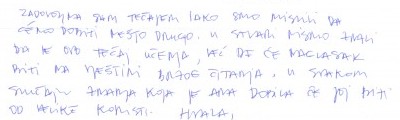 ZADOVOLJNA SAM TEČAJEM IAKO SMO MISLILI DA
ĆEMO DOBITI NEŠTO DRUGO. U STVARI NISMO ZNALI
DA JE OVO TEČAJ UČENJA, VEĆ DA ĆE NAGLASAK
BITI NA VJEŠTINI BRZOG ČITANJA. U SVAKOM
SLUČAJU ZNANJA KOJA JE ANA DOBILA ĆE JOJ BITI
OD VELIKE KORISTI. HVALA,